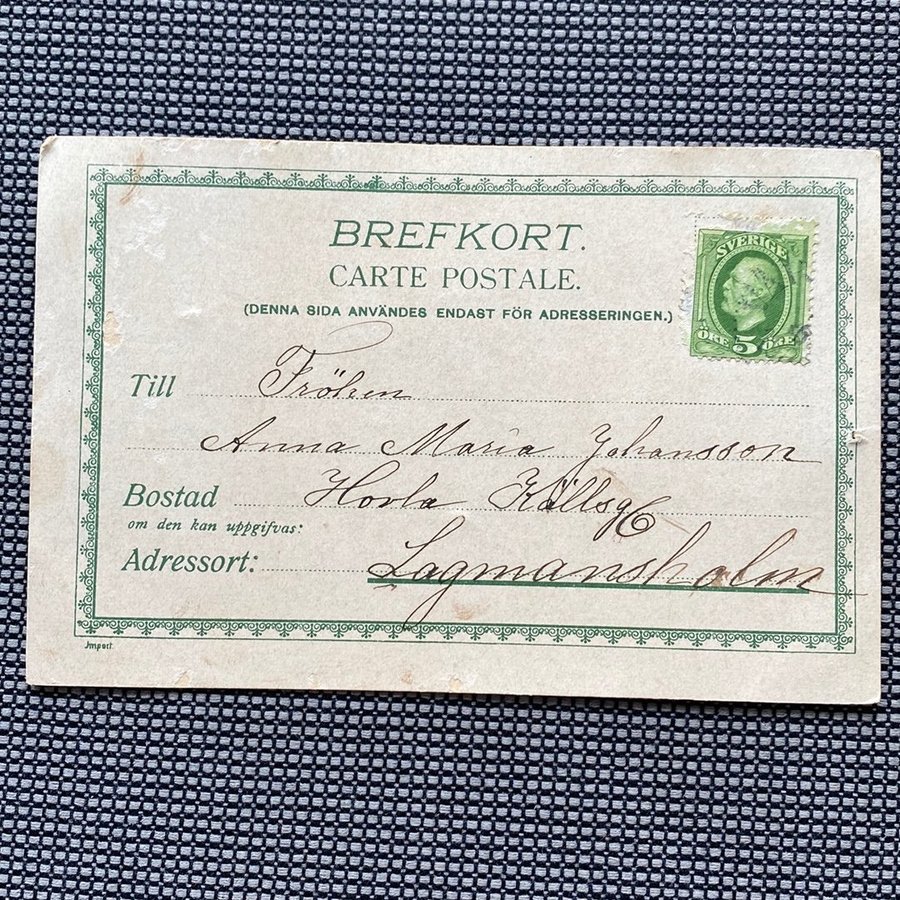 BREFKORT.
CARTE POSTALE.
(DENNA SIDA ANVÄNDES ENDAST FÖR ADRESSERINGEN.)
SVERIGE
ÖRE 5 ÖRE
Till Fröken
Anna Maria Johansson
Bostad Horla
om den kan uppgifvas:
Adressort: Lagmansholm
Import